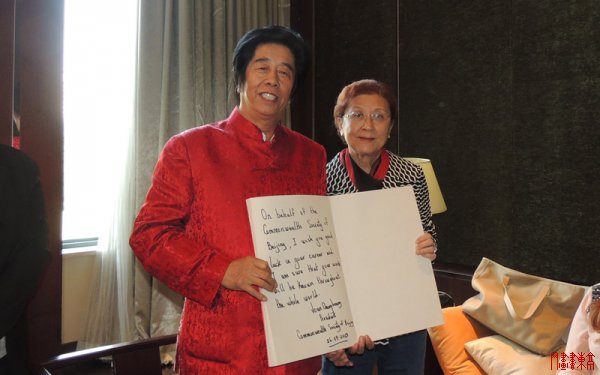 On behalf of the
Commonwealth Society of
Beijing, I wish you good
luck in your career and
I am sure that your work
will be known throughout
the whole world.
President
Commonwealth Society of